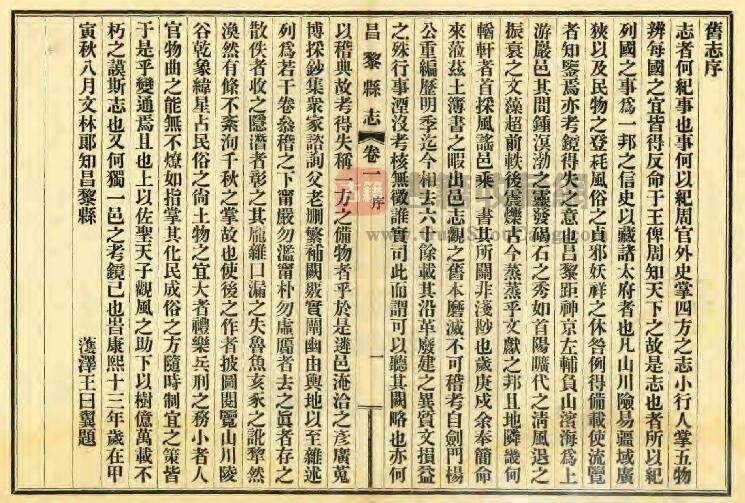 舊志序
志者何紀事也事何以紀周官外史掌四方之志小行人掌五物
辨每國之宜皆得反命于王俾周知天下之故是志也者所以紀
列國之事爲一邦之信史以藏諸太府者也凡山川險易疆域廣
狹以及民物之登耗風俗之貞邪妖祥之休咎例得備載使流覽
者知鑒焉亦考鏡得失之意也昌黎距神京左輔負山濱海爲上
游嚴邑其間鍾溟渤之靈發碣石之秀如首陽曠代之淸風退之
振衰之文藻超前軼後震爍古今蒸蒸乎文獻之邦且地隣畿甸
輶軒者首採風謠邑乘一書其所關非淺尠也歲庚戌余奉簡命
來蒞茲土簿書之暇出邑志觀之舊本磨滅不可稽考自劍門楊
公重編歷明季迄今相去六十餘載其沿革廢建之異質文損益
之殊行事湮沒考核無徵誰實司此而謂可以聽其闕略也亦何
昌黎縣志 卷一 序 一
以稽典故考得失稱一方之備物者乎於是遴邑淹洽之彥廣蒐
博採鈔集衆家諮詢父老刪繁補闕嚴實闡幽由輿地以至雜述
列爲若干卷叅稽之下甯嚴勿濫甯朴勿虛贋者去之眞者存之
散佚者收之隱潛者彰之其龐雜口漏之失魯魚亥豕之訛犂然
渙然有條不紊洵千秋之掌故也使後之作者披圖閱覽山川陵
谷乾象緯星占民俗之尙土物之宜大者禮樂兵刑之務小者人
官物曲之能無不燎如指掌其化民成俗之方隨時制宜之策皆
于是乎變通焉且也上以佐聖天子觀風之助下以樹億萬載不
朽之謨斯志也又何獨一邑之考鏡已也旹康熙十三年歲在甲
寅秋八月文林郞知昌黎縣 濩澤王曰翼題
古籍
www.TrueStoryCang.com